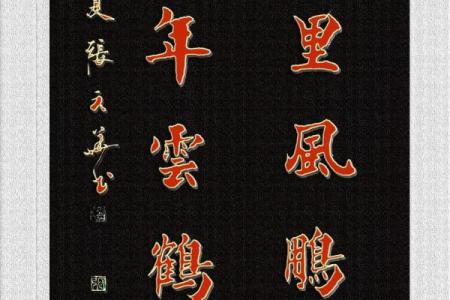 里風鵬
年雲鶴
夏張天華书